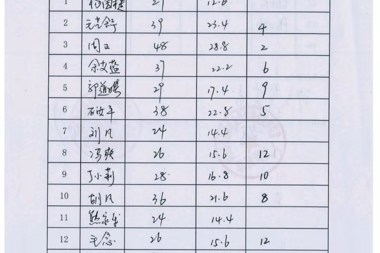 1 27 12.6
2 39 23.4 4
3 周卫 48 28.8 2
4 37 22.2 6
5 29 17.4 9
6 38 22.8 5
7 刘凡 24 14.4
8 冯爽 26 15.6 12
9 丁小莉 28 16.8 10
10 胡凡 36 21.6 8
11 熊 24 14.4
12 毛念 26 15.6 12